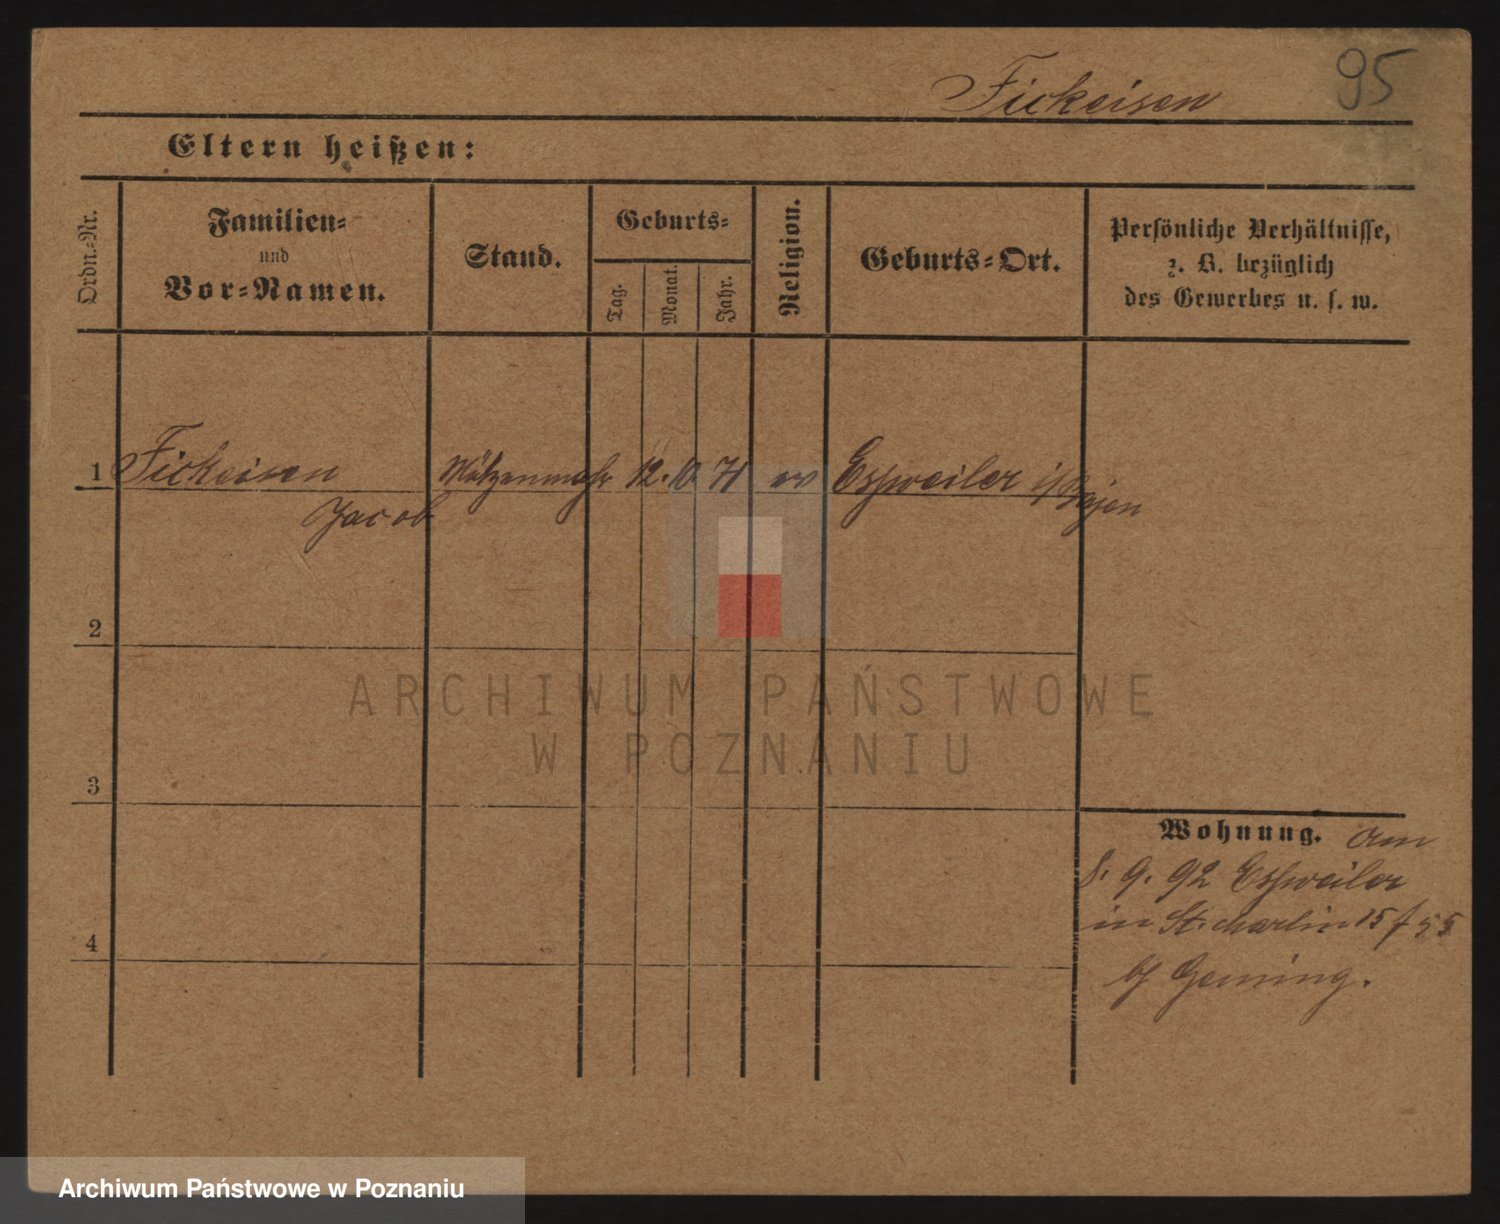 95
Fickeisen
Eltern heißen:
Ordn.-Nr.
Familien-
und
Vor-Namen.
Stand.
Geburts-
Tag.
Monat.
Jahr.
Religion.
Geburts-Ort.
Persönliche Verhältnisse,
z. B. bezüglich
des Gewerbes u. s. w.
1 Fickeisen Mützenmachr 12. 10 71 ev Eßweiler
Jacob
2
3
4
Wohnung. am
8. 9. 92 Eßweiler
in St. Martin 15 / 55
ARCHIWUM PAŃSTWOWE
W POZNANIU
Archiwum Państwowe w Poznaniu